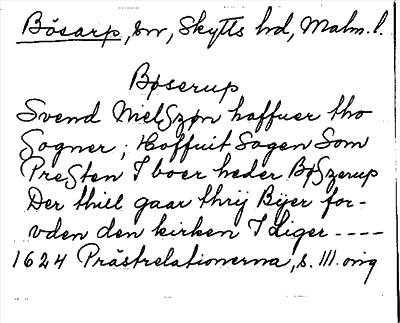 Bösarp, sn, Skytts hd, Malm. l.
Bøserup
Svend NielSzøn haffuer tho
Sogner; Hoffuit Sogen Som
PreSten I boer heder BøSzerup
Der thiell gaar thrij Bÿer for-
vden den kirken I Liger ----
1624 Prästrelationerna, s. 111. orig